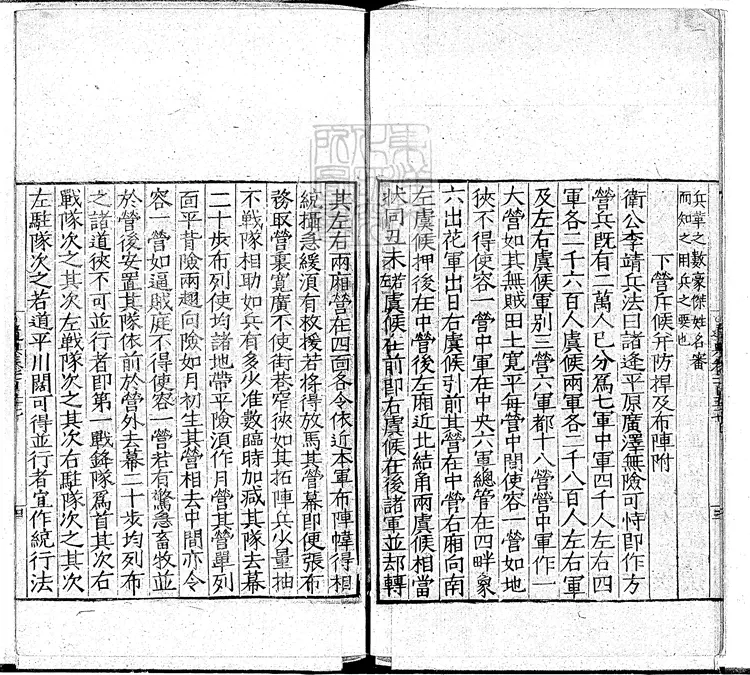 兵革之數豪傑姓名審
而知之用兵之要也
下營斥候并防捍及布陣附
衛公李靖兵法曰諸逢平原廣澤無險可恃即作方
營兵既有二萬人已分為七軍中軍四千人左右四
軍各二千六百人虞候兩軍各二千八百人左右軍
及左右虞候軍別三營六軍都十八營營中軍作一
大營如其無賊田土寬平每營中間使容一營如地
狹不得使容一營中軍在中央六軍總管在四畔象
六出花軍出日右虞候引前其營在中營右廂向南
左虞候押後在中營後左廂近北結角兩虞候相當
狀同丑未若左虞候在前即右虞候在後諸軍並却轉
其左右兩廂營在四面各令依近本軍布陣幃得相
統攝急緩須有救援若將得放馬其營幕即使張布
務取營裏寬廣不使街巷窄狹如其拓陣兵少量抽
不戰隊相助如兵有多少准數臨時加減其隊去幕
二十步布列使均諸地帶平險須作月營其營單列
面平背險兩翅向險如月初生其營相去中間亦令
容一營如逼賊庭不得使容一營若有驚急畜牧並
於營後安置其隊依前於營外去幕二十步均列布
之諸道狹不可並行者即第一戰鋒隊為首其次右
戰隊次之其次左戰隊次之其次右駐隊次之其次
左駐隊次之若道平川闊可得並行者宜作統行法